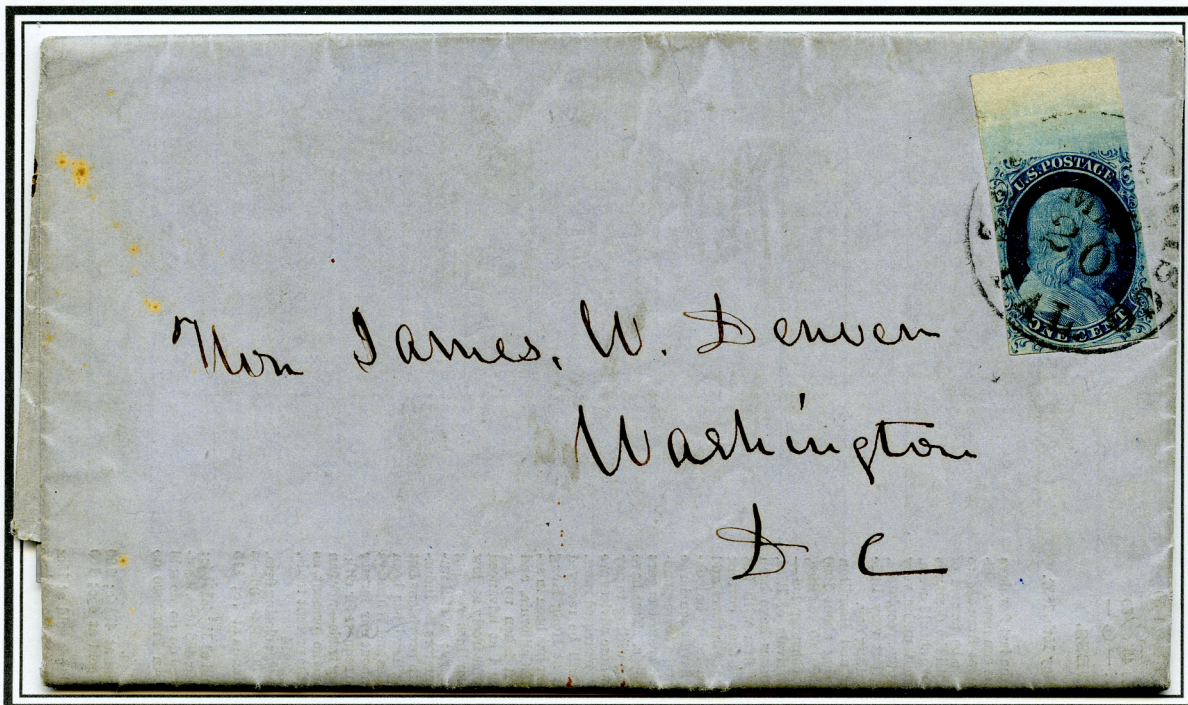 U.S. POSTAGE
20
ONE CENT.
Hon James. W. Denver
Washington
D C